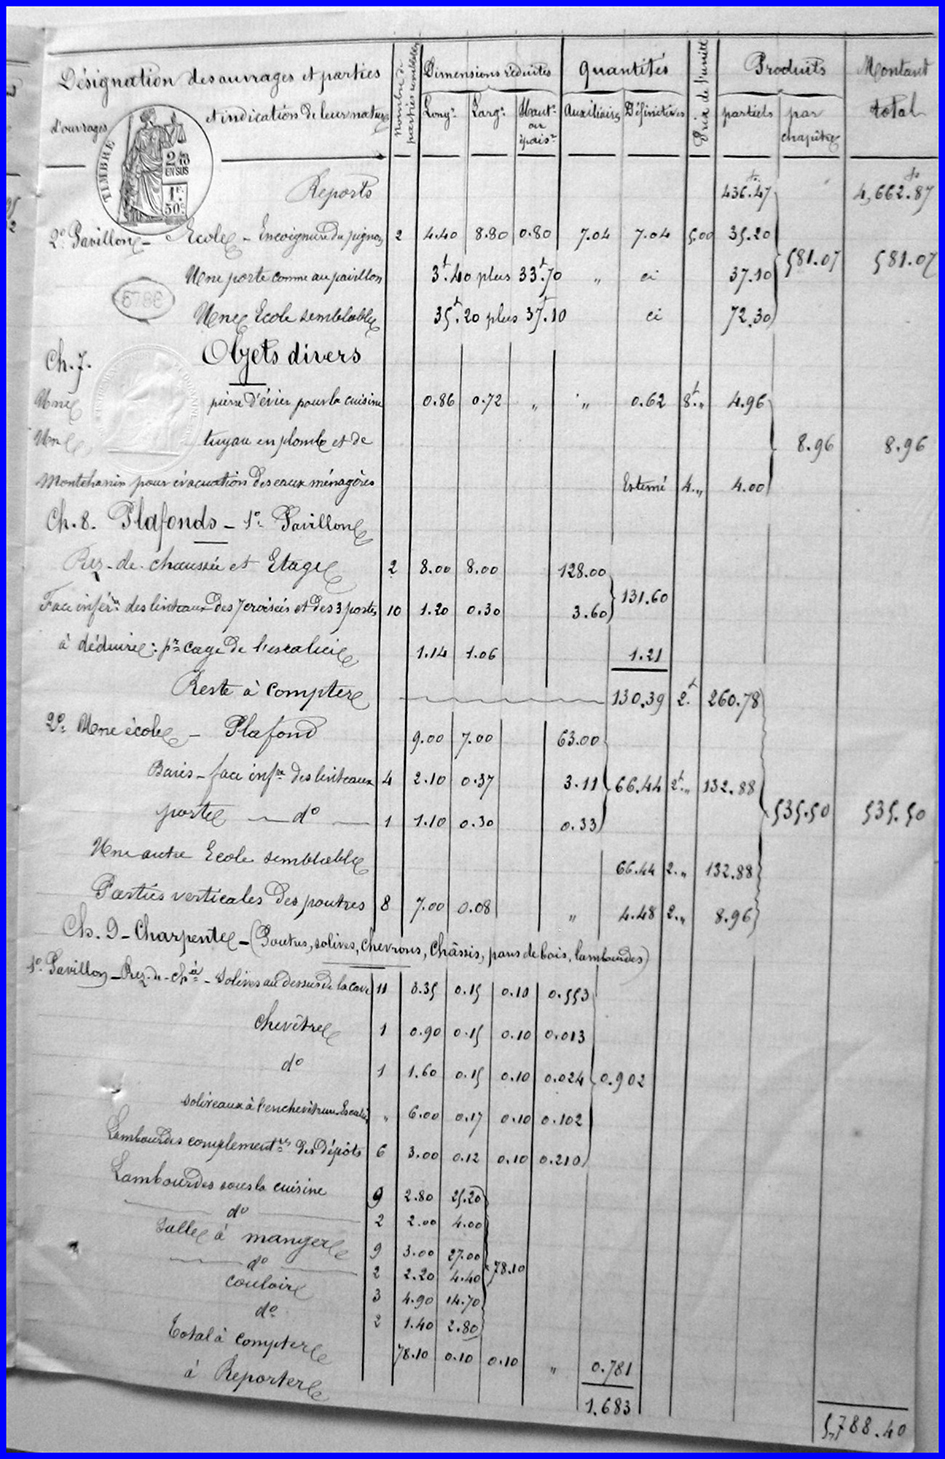 Désignation des ouvrages et parties d'ouvrages et indication de leur nature | Nombre de parties semblables | Dimensions réduites | Quantités | Prix de l'unité | Produits | Montant total
Long.r | Larg.r | Haut. ou épais.r | Auxiliaires | Définitives | partiels | par chapitre
TIMBRE 2/10 EN SUS 1F. 50c.
Reports 436.47 4,662.87
2e Pavillon - Ecole - Encoignure du pignon 2 4.40 8.80 0.80 7.04 7.04 5.00 35.20
581.07 581.07
Une porte comme au pavillon 3f.40 plus 33f.70 " ci 37.10
Une Ecole semblable 35f.20 plus 37f.10 ci 72.30
Ch. 7. Objets divers
Une pierre d'évier pour la cuisine 0.86 0.72 " " 0.62 8f." 4.96
Un tuyau en plomb et de 8.96 8.96
Montchanin pour évacuation des eaux ménagères Estimé 4." 4.00
Ch. 8. Plafonds - 1er Pavillon
Rez-de-chaussée et Etage 2 8.00 8.00 128.00
131.60
Face infér.re des linteaux des 7 croisées et des 3 portes 10 1.20 0.30 3.60
à déduire: pr cage de l'escalier 1.14 1.06 1.21
Reste à compter 130.39 2f. 260.78
2o Une école - Plafond 9.00 7.00 63.00
Baies - face infre des linteaux 4 2.10 0.37 3.11 66.44 2f." 132.88
535.50 535.50
porte — do — 1 1.10 0.30 0.33
Une autre Ecole semblable 66.44 2." 132.88
Parties verticales des poutres 8 7.00 0.08 " 4.48 2." 8.96
Ch. 9 - Charpente - (Poutres, solives, chevrons, Châssis, pans de bois, lambourdes)
1o Pavillon - Rez-de-ch.ée - Solives au dessus de la cave 11 3.35 0.15 0.10 0.553
Chevêtre 1 0.90 0.15 0.10 0.013
do 1 1.60 0.15 0.10 0.024 0.902
Soliveaux à l'enchevêtrure Escalier " 6.00 0.17 0.10 0.102
Lambourdes complement.res des dépôts 6 3.00 0.12 0.10 0.210
Lambourdes sous la cuisine 9 2.80 25.20
do 2 2.00 4.00
Salle à manger 9 3.00 27.00
78.10
do 2 2.20 4.40
couloir 3 4.90 14.70
do 2 1.40 2.80
Total à compter 78.10 0.10 0.10 " 0.781
à Reporter 1.683 5,788.40